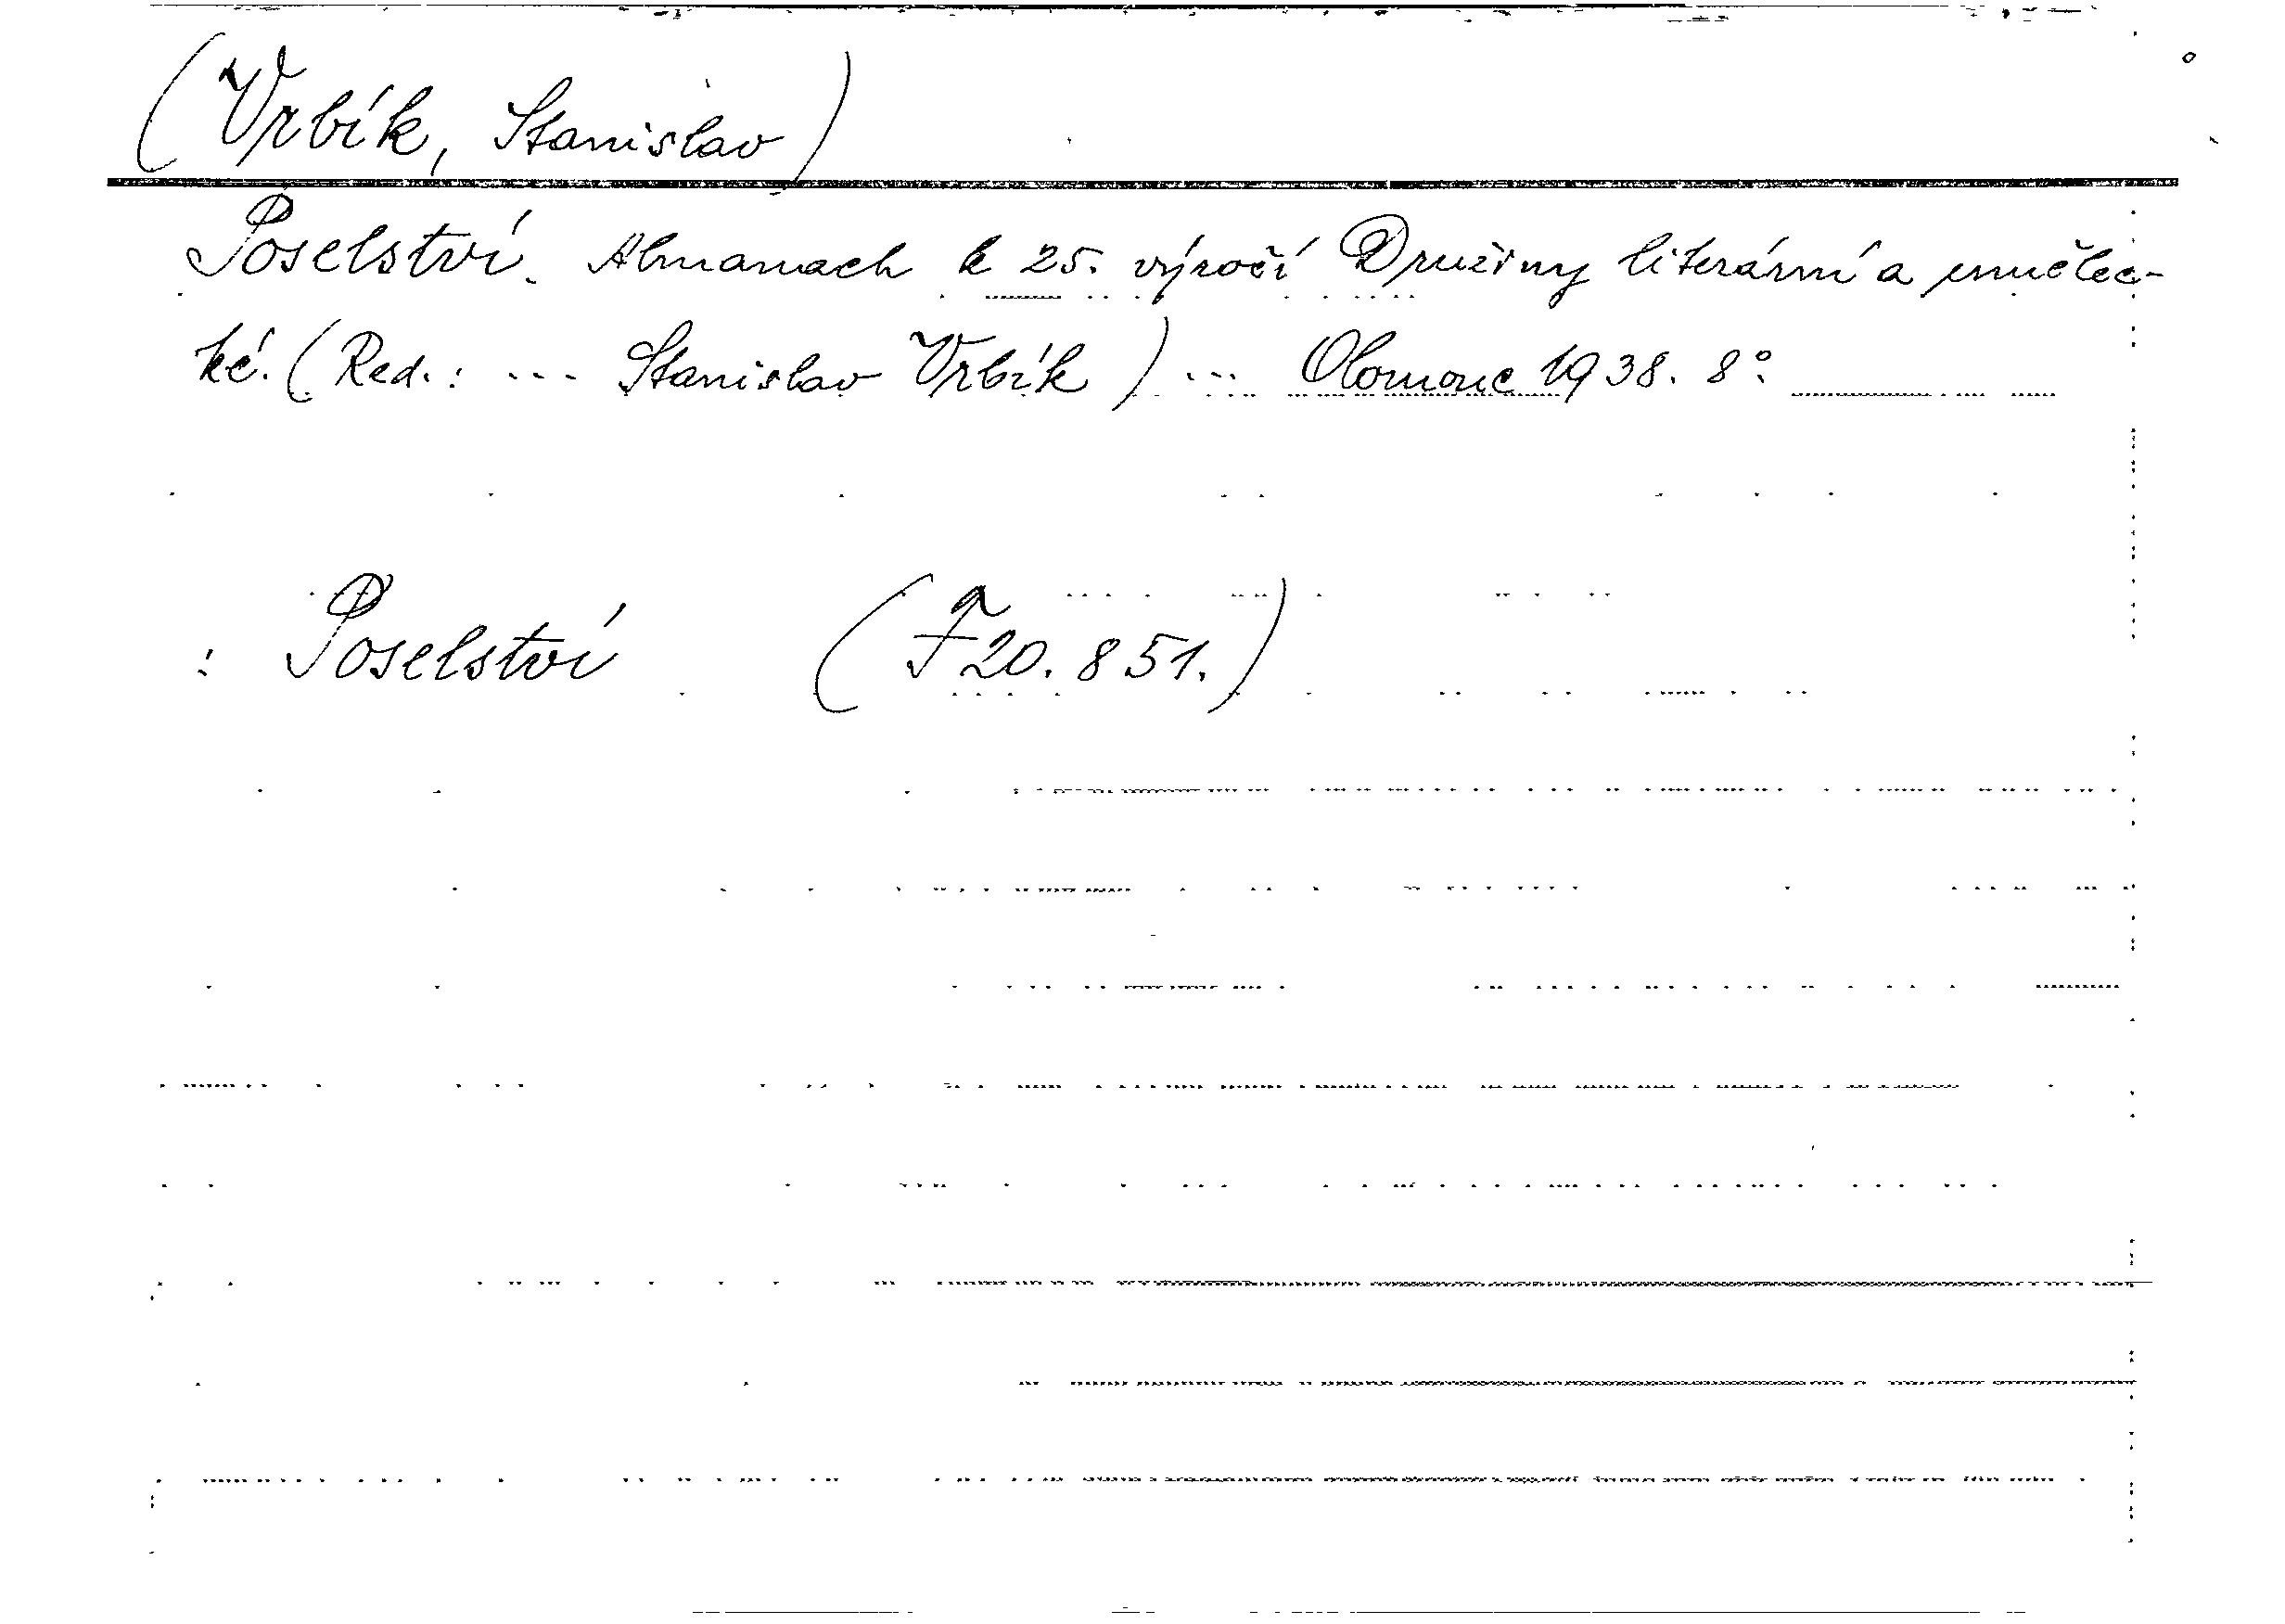 (Vrbík, Stanislav)
Poselství. Almanach k 25. výročí Družiny literární a umělec-
ké. (Red.: ... Stanislav Vrbík) ... Olomouc 1938. 8°.
: Poselství (F 20.851.)